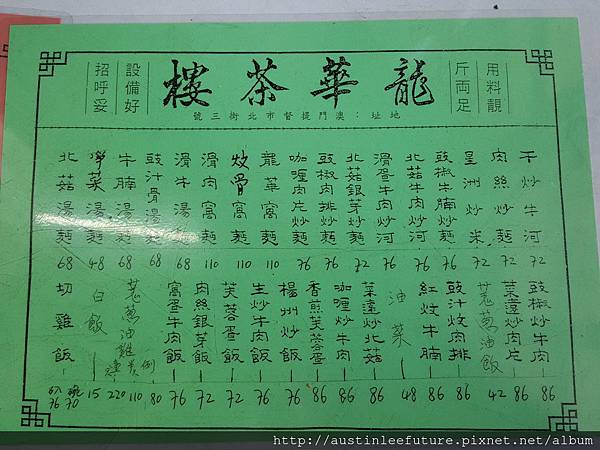 用料靚
斤両足
龍華茶樓
設備好
招呼妥
地址：澳門提督市北街三號
干炒牛河 72
肉絲炒麵 72
星洲炒米 72
豉椒牛腩炒麵 76
北菇牛肉炒河 76
滑蛋牛肉炒河 76
北菇銀芽炒麵 72
豉椒肉排炒麵 76
咖喱肉片炒麵 76
龍華窩麵 110
炆骨窩麵 110
滑肉窩麵 110
滑牛湯麵 68
豉汁骨湯麵 68
牛腩湯麵 68
淨菜湯麵 48
北菇湯麵 68
豉椒炒牛肉 86
菜遠炒肉片 86
薑葱油飯 42
豉汁炆肉排 86
紅炆牛腩 86
油菜 48
菜遠炒北菇 86
咖喱炒牛肉 86
香煎芙蓉蛋 86
楊州炒飯 76
生炒牛肉飯 76
芙蓉蛋飯 72
肉絲銀芽飯 72
窩蛋牛肉飯 76
薑葱油雞 例 80 110 220
白飯 15
切雞飯 70 76
http://austinleefuture.pixnet.net/album